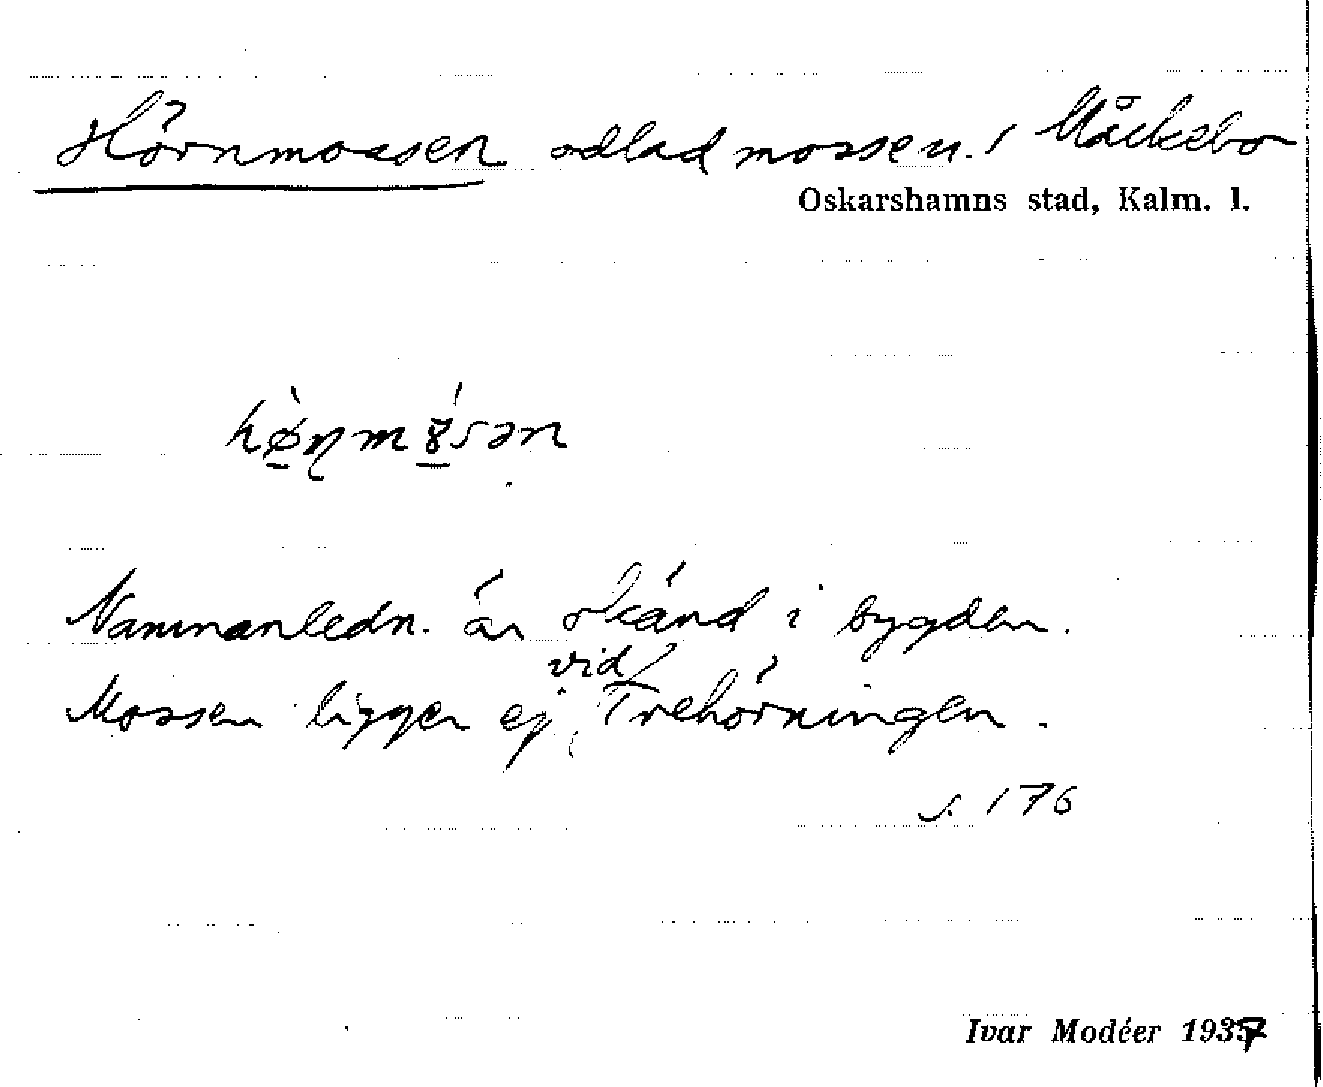 Hörnmossen odlad mosse u. / Måckebo
Oskarshamns stad, Kalm. l.
Namnanledn. är okänd i bygden.
Mossen ligger ej vid Trehörningen.
s. 176
Ivar Modéer 1937